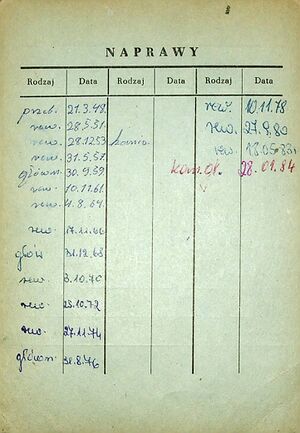 NAPRAWY
Rodzaj Data Rodzaj Data Rodzaj Data
przeb. 21.3.48.
rew. 28.5.51.
rew. 28.12.53
rew. 31.5.57.
główn. 30.9.59
rew. 10.11.61.
rew. 4.8.64.
rew. 17.11.66
głów 31.12.68
rew. 3.10.70
rew. 23.10.72
rew. 27.11.74
główn. 31.8.76
rew. 10.11.78
rew. 27.9.80
rew. 18.05.83
28.01.84